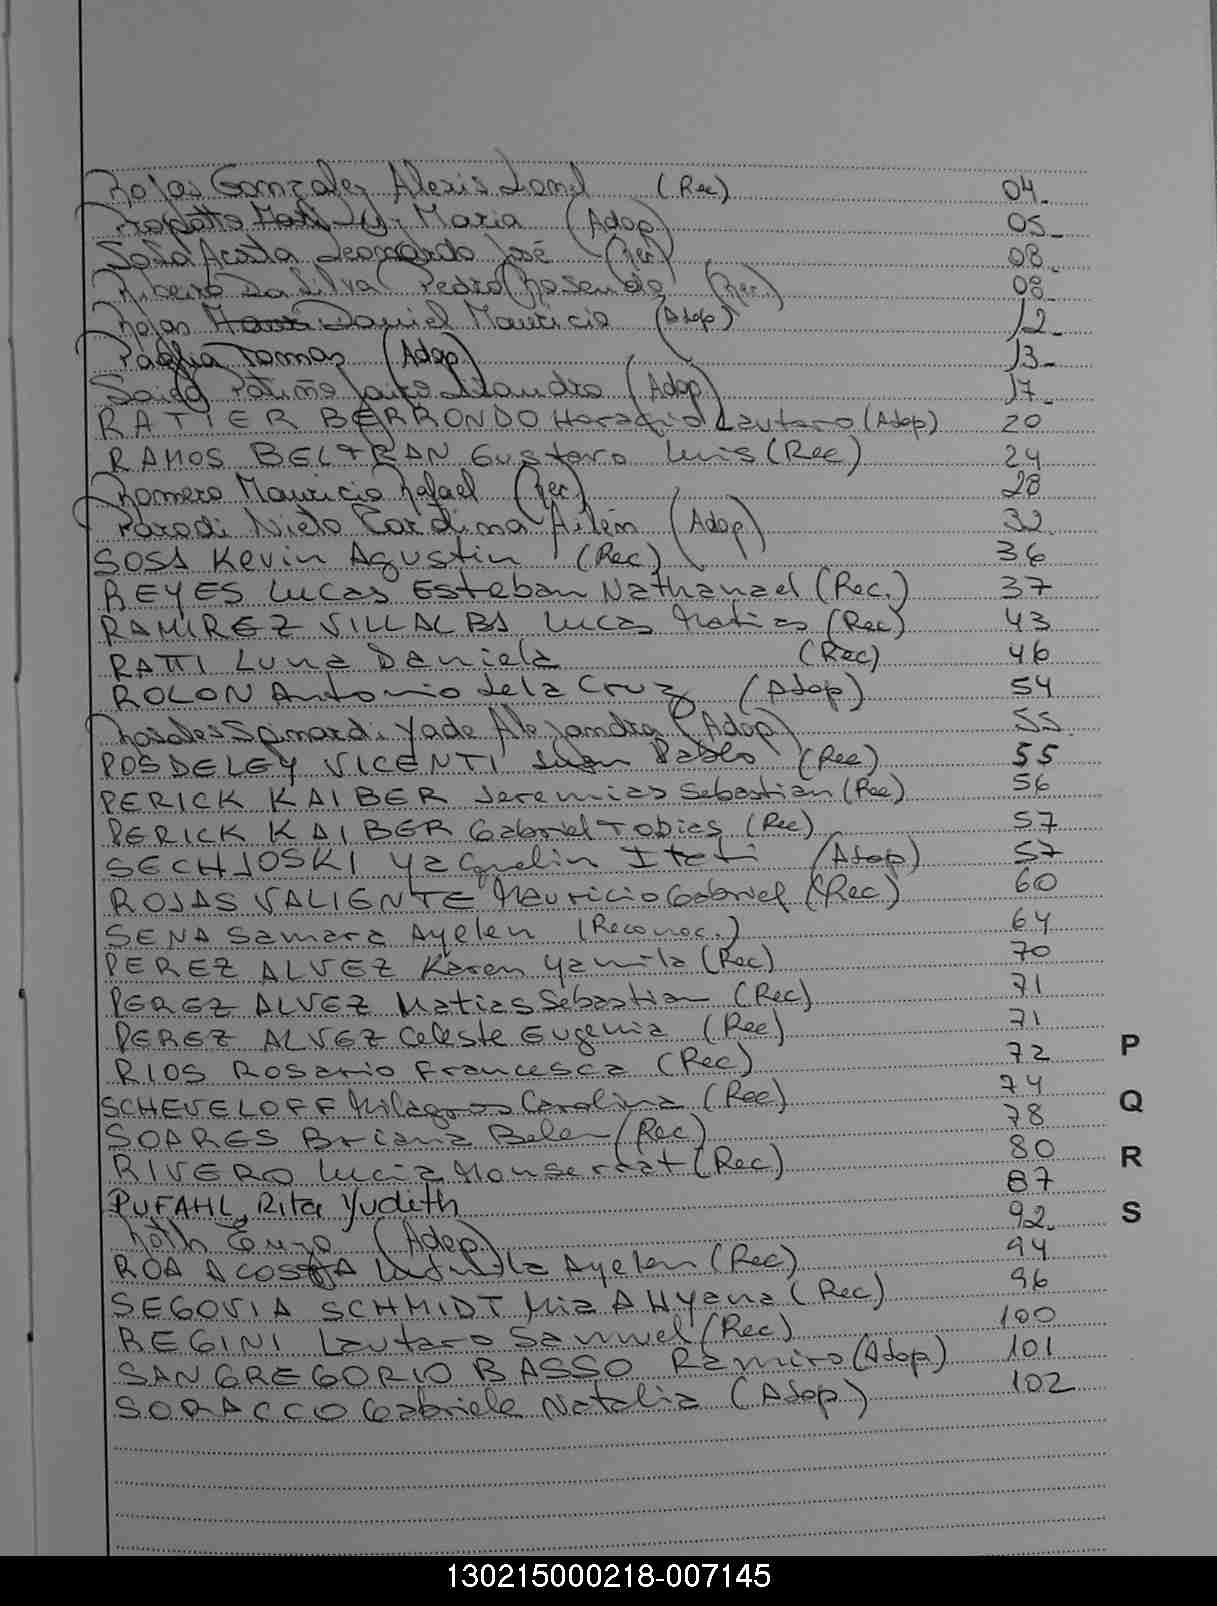 Rojas Gonzalez Alexis Lionel (Rec) 04.
Maria (Adop) 05
Sosa Acosta Leonardo José (Rec) 08
Ribeiro Da Silva Pedro Rosendo (Rec.) 08
Rojas Daniel Mauricio (Adop) 12
Paglia Tomas (Adop) 13
Jairo Lisandro (Adop) 17
RATIER BERRONDO Horacio Lautaro (Adop) 20
RAMOS BELTRAN Gustavo Luis (Rec) 24
Romero Mauricio Rafael (Rec) 28
Parodi Nieto Ailén (Adop) 32
SOSA Kevin Agustin (Rec) 36
REYES Lucas Esteban Nathanael (Rec.) 37
RAMIREZ VILLALBA Lucas Matias (Rec) 43
RATTI Luna Daniela (Rec) 46
ROLON Antonio de la Cruz (Adop) 54
Rosales Spinardi Alejandra (Adop) 55
POSDELEY VICENTI Juan Pablo (Rec) 55
PERICK KAIBER Jeremias Sebastian (Rec) 56
PERICK KAIBER Gabriel Tobias (Rec) 57
SECHJOSKI Yaquelin Itati (Adop) 57
ROJAS VALIENTE Mauricio Gabriel (Rec) 60
SENA Samara Ayelen (Reconoc.) 64
PEREZ ALVEZ Karen Yamila (Rec) 70
PEREZ ALVEZ Matias Sebastian (Rec) 71
PEREZ ALVEZ Celeste Eugenia (Rec) 71
RIOS Rosario Francesca (Rec) 72
SCHEVELOFF Milagros Carolina (Rec) 74
SOARES Briana Belen (Rec) 78
RIVERO Lucia Monserrat (Rec) 80
PUFAHL, Rita Yudith 87
Enzo (Adop) 92.
ROA ACOSTA Ludmila Ayelen (Rec) 94
SEGOVIA SCHMIDT Mia AHyana (Rec) 96
REGINI Lautaro Samuel (Rec) 100
SANGREGORIO BASSO Ramiro (Adop) 101
SORACCO Gabriela Natalia (Adop) 102
P
Q
R
S
130215000218-007145